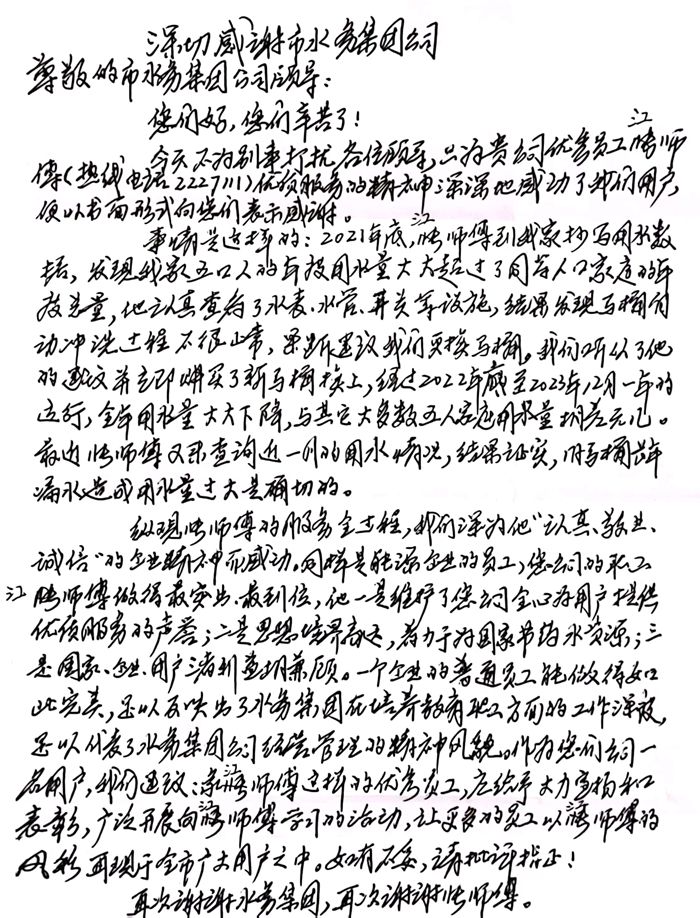 深切感谢市水务集团公司
尊敬的市水务集团公司领导：
您们好，您们辛苦了！
江
今天不为别事打扰各位领导，只为贵公司优秀员工 师
傅（热线电话2227111）优质服务的精神深深地感动了我们用户，
便以书面形式向您们表示感谢。
江
事情是这样的：2021年底， 师傅到我家抄写用水数
据，发现我家五口人的年投用水量大大超过了同等人口家庭的年
投总量，他认真查看了水表、水管、开关等设施，结果发现马桶自
动冲洗过程不很正常，果断建议我们更换马桶。我们听从了他
的建议并立即购买了新马桶换上，经过2022年底至2023年12月一年的
运行，全年用水量大大下降，与其它大多数五人家庭用水量相差无几。
最近 师傅又来查询近一月的用水情况，结果证实，旧马桶常年
漏水造成用水量过大是确切的。
纵观 师傅的服务全过程，我们深为他“认真、敬业、
诚信”的企业精神而感动。同样是能源企业的员工，您公司的职工
江
师傅做得最突出、最到位，他一是维护了您公司全心为用户提供
优质服务的声誉；二是思想境界高大，着力于为国家节约水资源；三
是国家、企业、用户三者利益相兼顾。一个企业的普通员工能做得如
此完美，足以反映出了水务集团在培养教育职工方面的工作深效，
足以代表了水务集团公司经营管理的精神风貌。作为您们公司一
名用户，我们建议：像 师傅这样的优秀员工，应给予大力宣扬和
表彰，广泛开展向 师傅学习的活动，让更多的员工以 师傅的
风彩再现于全市广大用户之中。如有不妥，请批评指正！
再次谢谢水务集团，再次谢谢 师傅。